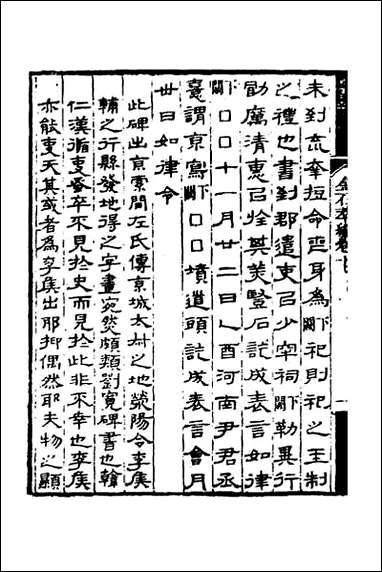 未到不幸短命喪身為下闕祀則祀之王制
之禮也書到郡遣吏以少牢祠下闕勒異行
勖厲清惠以旌其美豎石訖成表言如律
下闕□□十一月廿二日乙酉河南尹君丞
憙謂京寫下闕□□墳道頭訖成表言會月
卅日如律令
此碑出京索間左氏傳京城太叔之地滎陽令李侯
輔之行縣發地得之字畫宛然頗類劉寬碑書也韓
仁漢循吏蚤卒不見於史而見於此非不幸也李侯
亦能吏天其或者為李侯出耶抑偶然耶夫物之顯
金石萃編卷十